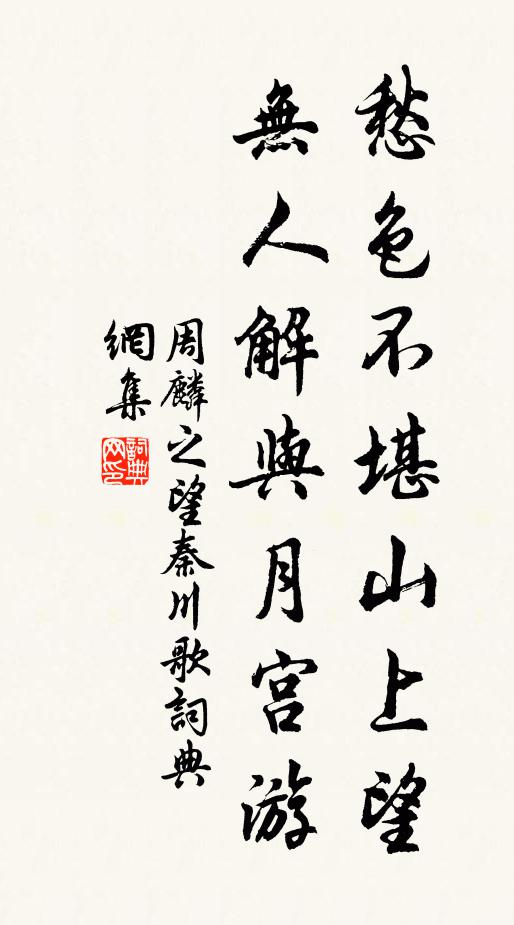 愁色不堪山上望
無人解與月宮游
周麟之望秦川歌詞典
網集
詞典網印